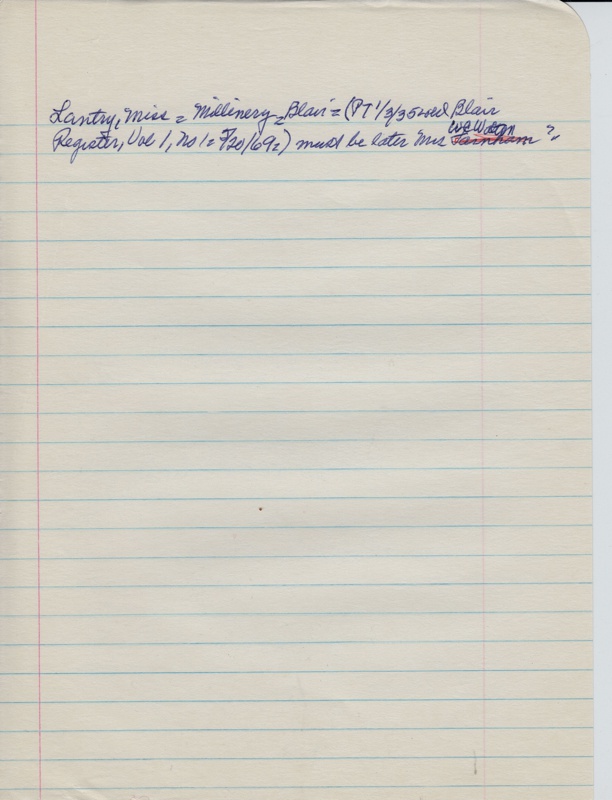 Lantry, Miss = Millinery = Blair = (PT 1/3/35 Blair
W C Walton
Register, Vol 1, No 1 = 7/20/69=) must be later Mrs Farnham ?